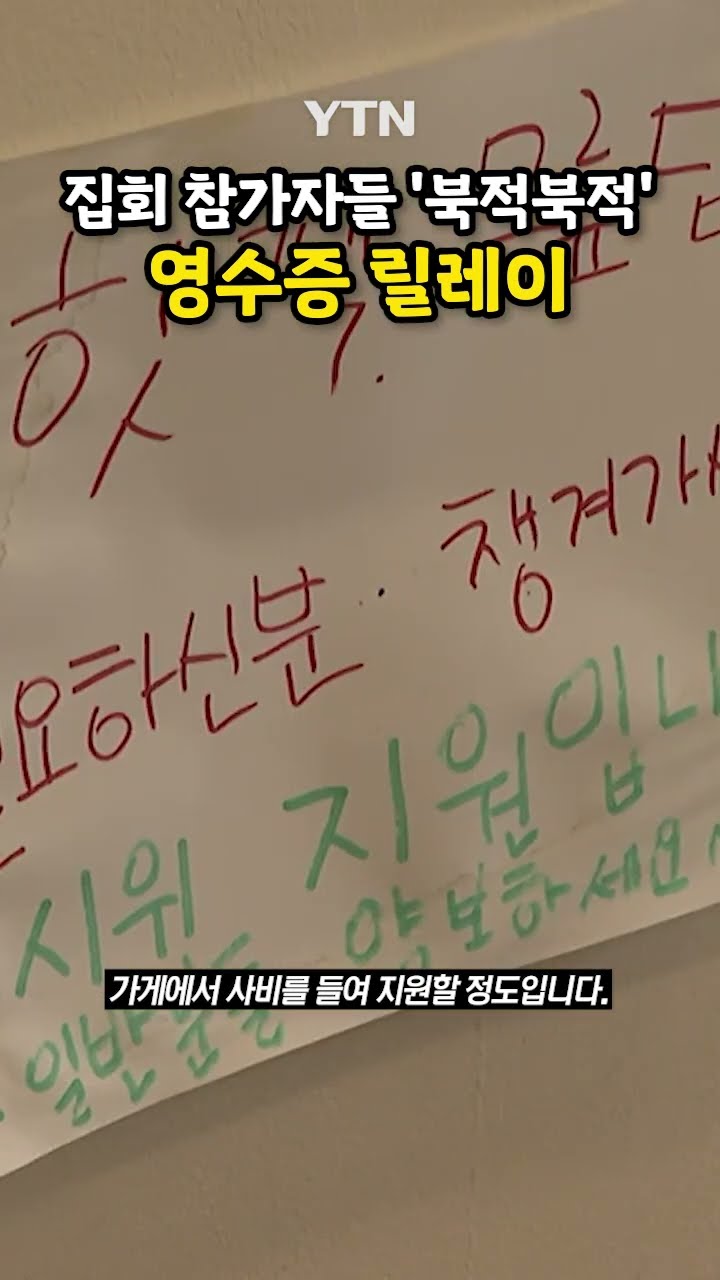 YTN
집회 참가자들 '북적북적'
영수증 릴레이
핫
요하신분. 챙겨가
시위 지원입니
일반분들 양보하세요
가게에서 사비를 들여 지원할 정도입니다.